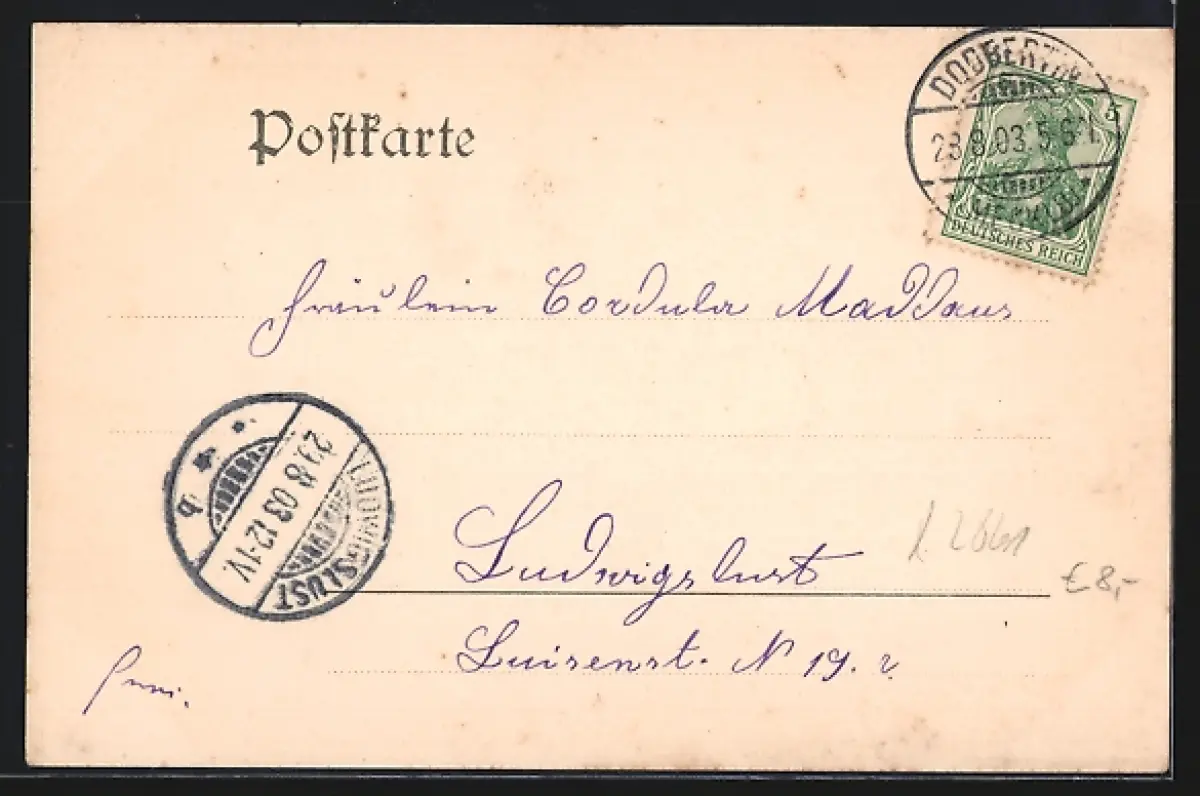 Postkarte
DOBBERTIN
28.8.03.5-6N.
DEUTSCHES REICH
5
Fräulein Cordula Maddaus
LUDWIGSLUST
29.8.03.12-1V.
b
Ludwigslust
€ 8,-
Luisenst. N 19. r.